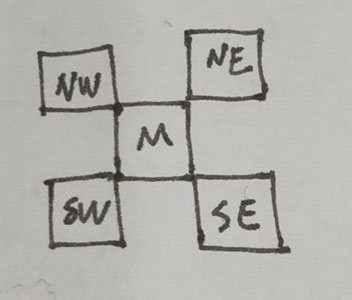 NW
NE
M
SW
SE